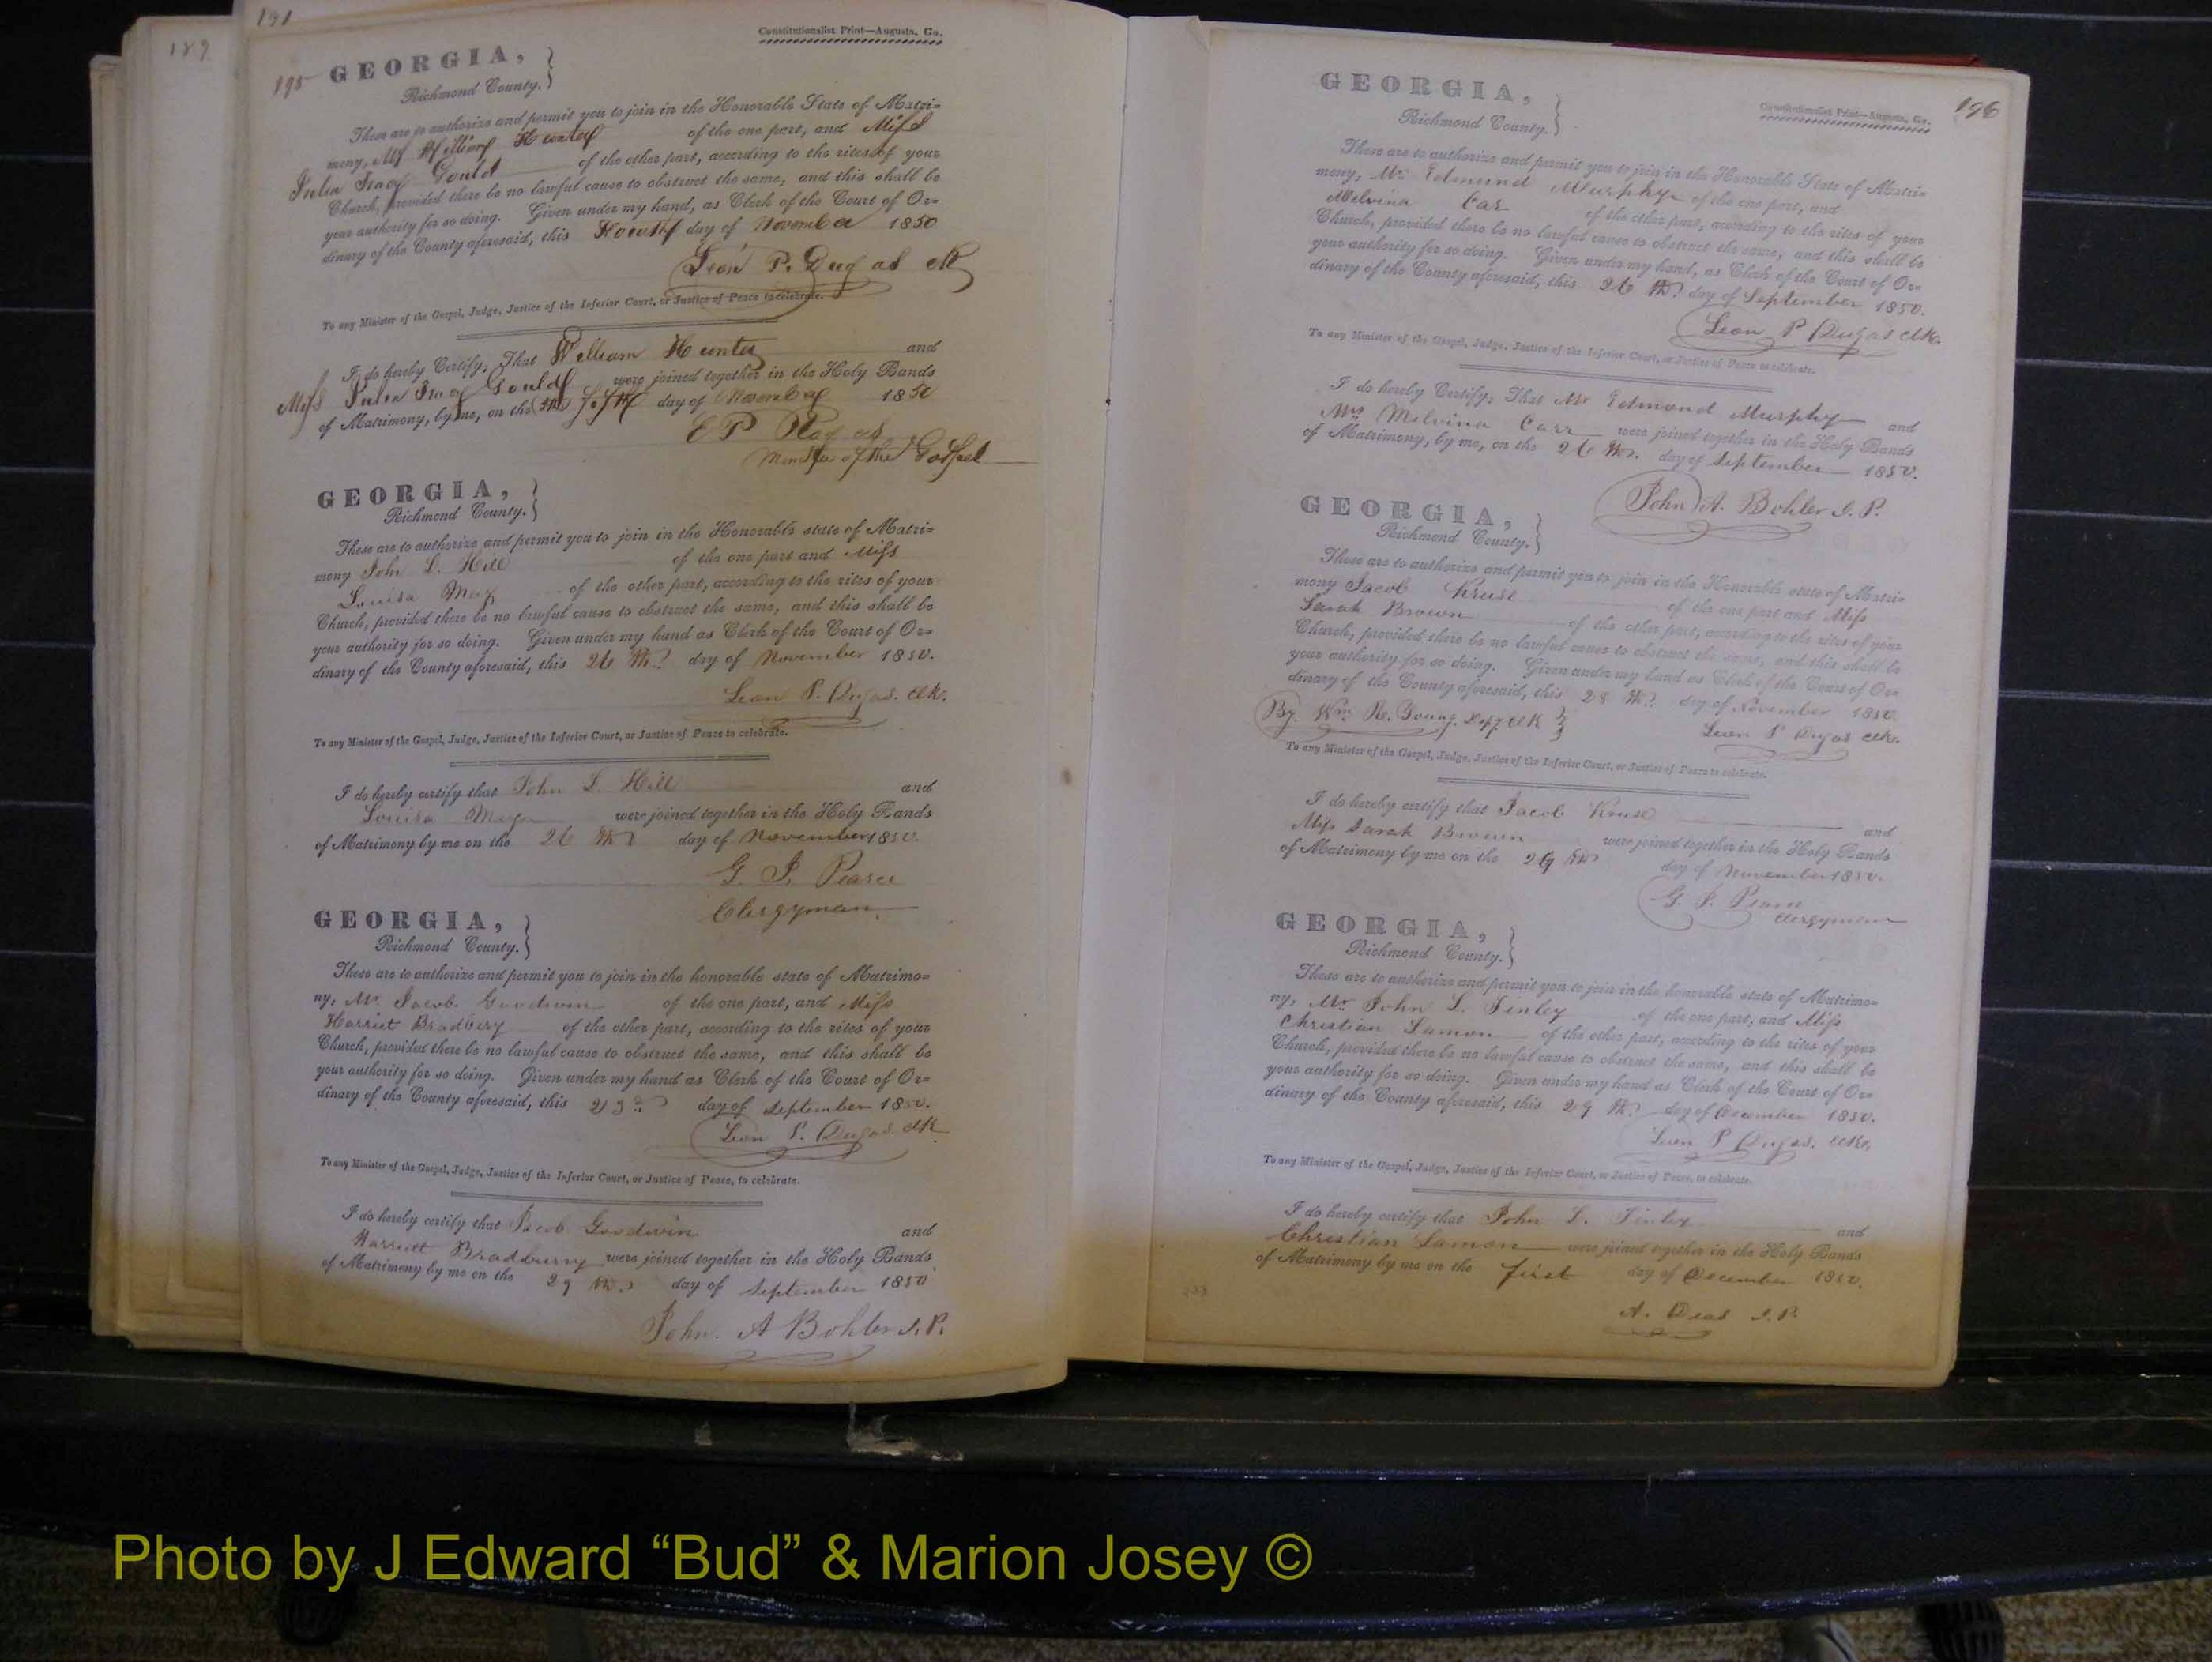 191
189
Constitutionalist Print—Augusta, Ga.
195 GEORGIA,
Richmond County.
These are to authorize and permit you to join in the Honorable State of Matri=
mony, Mr William Hunter of the one part, and Miss
Julia Gould of the other part, according to the rites of your
Church, provided there be no lawful cause to obstruct the same, and this shall be
your authority for so doing. Given under my hand, as Clerk of the Court of Or=
dinary of the County aforesaid, this Fourth day of November 1850
Leon P. Dugas clk
To any Minister of the Gospel, Judge, Justice of the Inferior Court, or Justice of Peace to celebrate.
I do hereby Certify; That William Hunter and
Miss Julia Gould were joined together in the Holy Bands
of Matrimony, by me, on the day of November 1850
E P
of the Gospel
GEORGIA,
Richmond County.
These are to authorize and permit you to join in the Honorable state of Matri=
mony John L. Hill of the one part and Miss
Louisa May of the other part, according to the rites of your
Church, provided there be no lawful cause to obstruct the same, and this shall be
your authority for so doing. Given under my hand as Clerk of the Court of Or=
dinary of the County aforesaid, this 26 th day of November 1850.
Leon P. Dugas. clk.
To any Minister of the Gospel, Judge, Justice of the Inferior Court, or Justice of Peace to celebrate.
I do hereby certify that John L Hill and
Louisa May were joined together in the Holy Bands
of Matrimony by me on the 26 th day of November 1850.
G. J. Pearce
Clergyman.
GEORGIA,
Richmond County.
These are to authorize and permit you to join in the honorable state of Matrimo=
ny, Mr. Jacob Goodwin of the one part, and Miss
Harriet Bradbery of the other part, according to the rites of your
Church, provided there be no lawful cause to obstruct the same, and this shall be
your authority for so doing. Given under my hand as Clerk of the Court of Or=
dinary of the County aforesaid, this 23 d day of September 1850.
Leon P. Dugas. clk
To any Minister of the Gospel, Judge, Justice of the Inferior Court, or Justice of Peace, to celebrate.
I do hereby certify that Jacob Goodwin and
Harriett Bradburry were joined together in the Holy Bands
of Matrimony by me on the 29 th day of September 1850
John. A Bohler J. P.
196
Constitutionalist Print—Augusta, Ga.
GEORGIA,
Richmond County.
These are to authorize and permit you to join in the Honorable State of Matri=
mony, Mr. Edmund Murphy of the one part, and
Melvina Car of the other part, according to the rites of your
Church, provided there be no lawful cause to obstruct the same, and this shall be
your authority for so doing. Given under my hand, as Clerk of the Court of Or=
dinary of the County aforesaid, this 26 th day of September 1850.
Leon P Dugas clk.
To any Minister of the Gospel, Judge, Justice of the Inferior Court, or Justice of Peace to celebrate.
I do hereby Certify; That Mr Edmond Murphy and
Mrs Melvina Carr were joined together in the Holy Bands
of Matrimony, by me, on the 26 th. day of September 1850.
John A. Bohler J. P.
GEORGIA,
Richmond County.
These are to authorize and permit you to join in the Honorable state of Matri=
mony Jacob Kruse of the one part and Miss
Sarah Brown of the other part, according to the rites of your
Church, provided there be no lawful cause to obstruct the same, and this shall be
your authority for so doing. Given under my hand as Clerk of the Court of Or=
dinary of the County aforesaid, this 28 th day of November 1850.
By Wm H. Young. Depy clk Leon P Dugas clk.
To any Minister of the Gospel, Judge, Justice of the Inferior Court, or Justice of Peace to celebrate.
I do hereby certify that Jacob Kruse and
Miss Sarah Brown were joined together in the Holy Bands
of Matrimony by me on the 29 th day of November 1850.
G. J. Pearce
Clergyman
GEORGIA,
Richmond County.
These are to authorize and permit you to join in the honorable state of Matrimo=
ny, Mr John L. Finley of the one part, and Miss
Christian Lamon of the other part, according to the rites of your
Church, provided there be no lawful cause to obstruct the same, and this shall be
your authority for so doing. Given under my hand as Clerk of the Court of Or=
dinary of the County aforesaid, this 29 th day of December 1850.
Leon P Dugas. clk.
To any Minister of the Gospel, Judge, Justice of the Inferior Court, or Justice of Peace, to celebrate.
I do hereby certify that John L. Finley and
Christian Lamon were joined together in the Holy Bands
of Matrimony by me on the first day of December 1850.
A. J.P.
Photo by J Edward “Bud” & Marion Josey ©